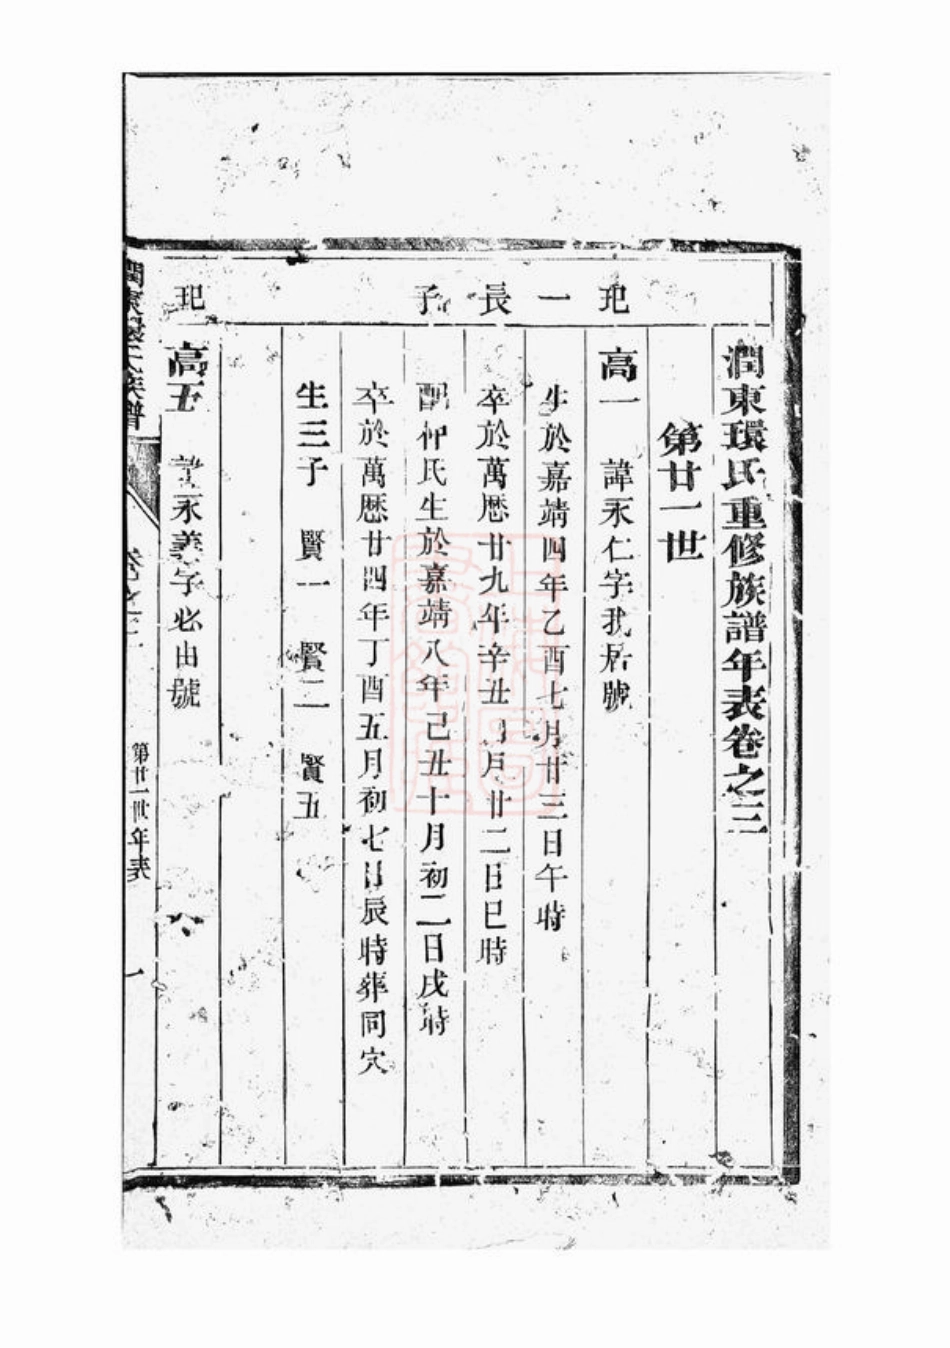 潤東環氏重修族譜年表卷之三
第廿一世
玘一長子
高一 諱永仁字我居號
生於嘉靖四年乙酉七月廿三日午時
卒於萬曆廿九年辛丑 月廿二日巳時
配仲氏生於嘉靖八年己丑十月初二日戌時
卒於萬曆廿四年丁酉五月初七日辰時葬同穴
生三子 賢一 賢二 賢五
玘
高五 諱永義字必由號
潤東環氏族譜 卷之三 第廿一世年表 一